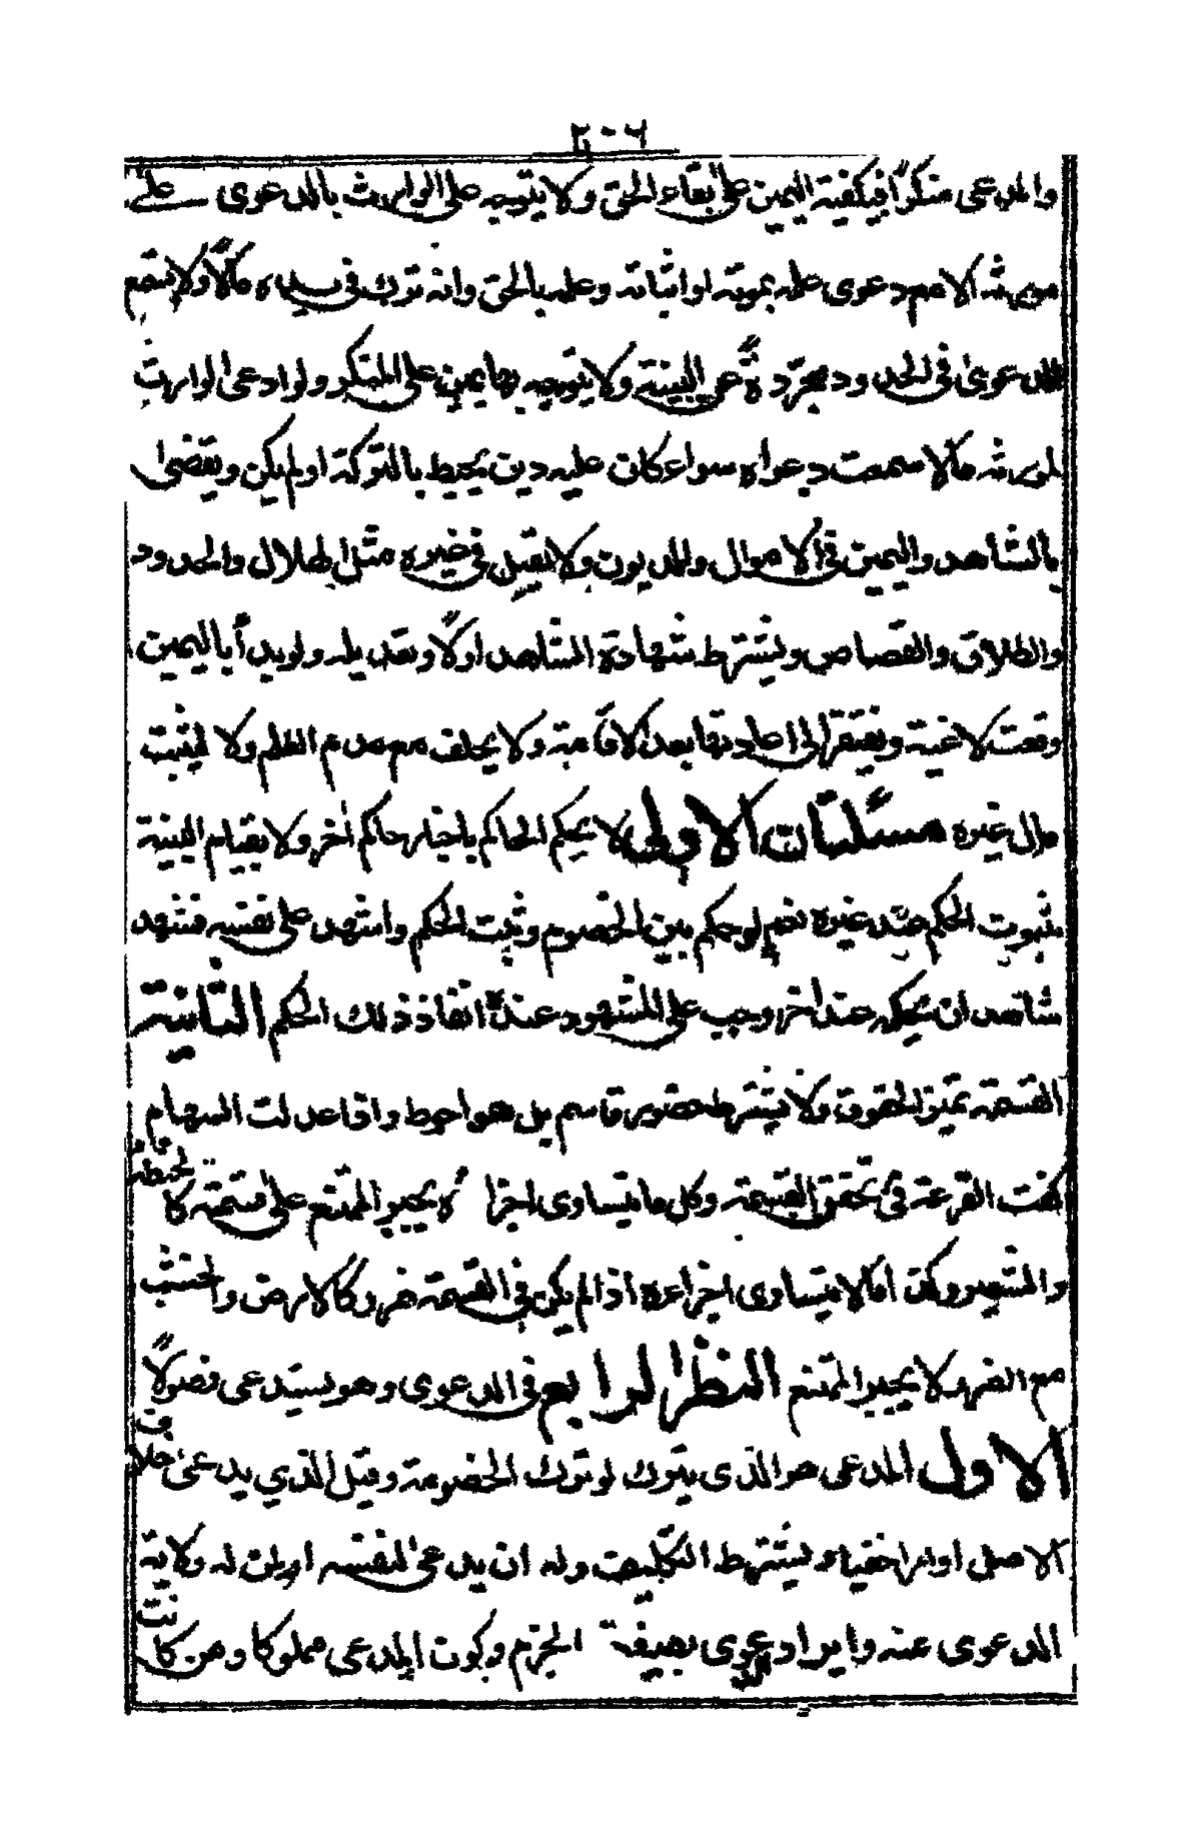 ٢٠٦
والمدعى منكرًا فيكفيه اليمين على بقاء الحق ولا يتوجه على الوارث بالدعوى على
مورثه الا مع دعوى علمه بموته او اثباته وعلمه بالحق وانه ترك في يده مالًا ولا تسمع
الدعوى في الحدود مجردةً عن البينة ولا يتوجه بها يمين على المنكر ولو ادعى الوارث
لمورثه مالا سمعت دعواه سواء كان عليه دين يحيط بالتركة اولم يكن ويقضى
بالشاهد واليمين في الاموال والديون ولا يقبل في غيره مثل الهلال والحدود
والطلاق والقصاص ويشترط شهادة الشاهد اولًا وتعديله ولو بدأ باليمين
وقعت لاغية ويفتقر الى اعادتها بعد الاقامة ولا يحلف مع عدم العلم ولا ليثبت
مال غيره مسئلتان الاولى لا يحكم الحاكم باخبار حاكم اخر ولا بقيام البينة
بثبوت الحكم عند غيره نعم لو حكم بين الخصوم وثبت الحكم واشهد على نفسه فشهد
شاهدان بحكمه عند اخر وجب على المشهود عنده انفاذ ذلك الحكم الثانية
القسمة تميز الحقوق ولا يشترط حضور قاسم بل هو احوط واذا عدلت السهام
كفت القرعة في تحقق القسمة وكل ما يتساوى اجزاءه يجبر الممتنع على قسمته كالحنطة
والشعير وكذا ما لا يتساوى اجزاءه اذا لم يكن في القسمة ضرر كالارض والخشب
مع الضرر لا يجبر الممتنع النظر الرابع في الدعوى وهو يستدعى فصولًا
الاول المدعى هو الذى يترك لو ترك الخصومة وقيل الذي يدعى خلاف
الاصل او امرا خفيا ويشترط التكليف وله ان يدعى لنفسه او لمن له ولاية
الدعوى عنه وايراد الدعوى بصيغة الجزم وكون المدعى مملوكا ومن كانت